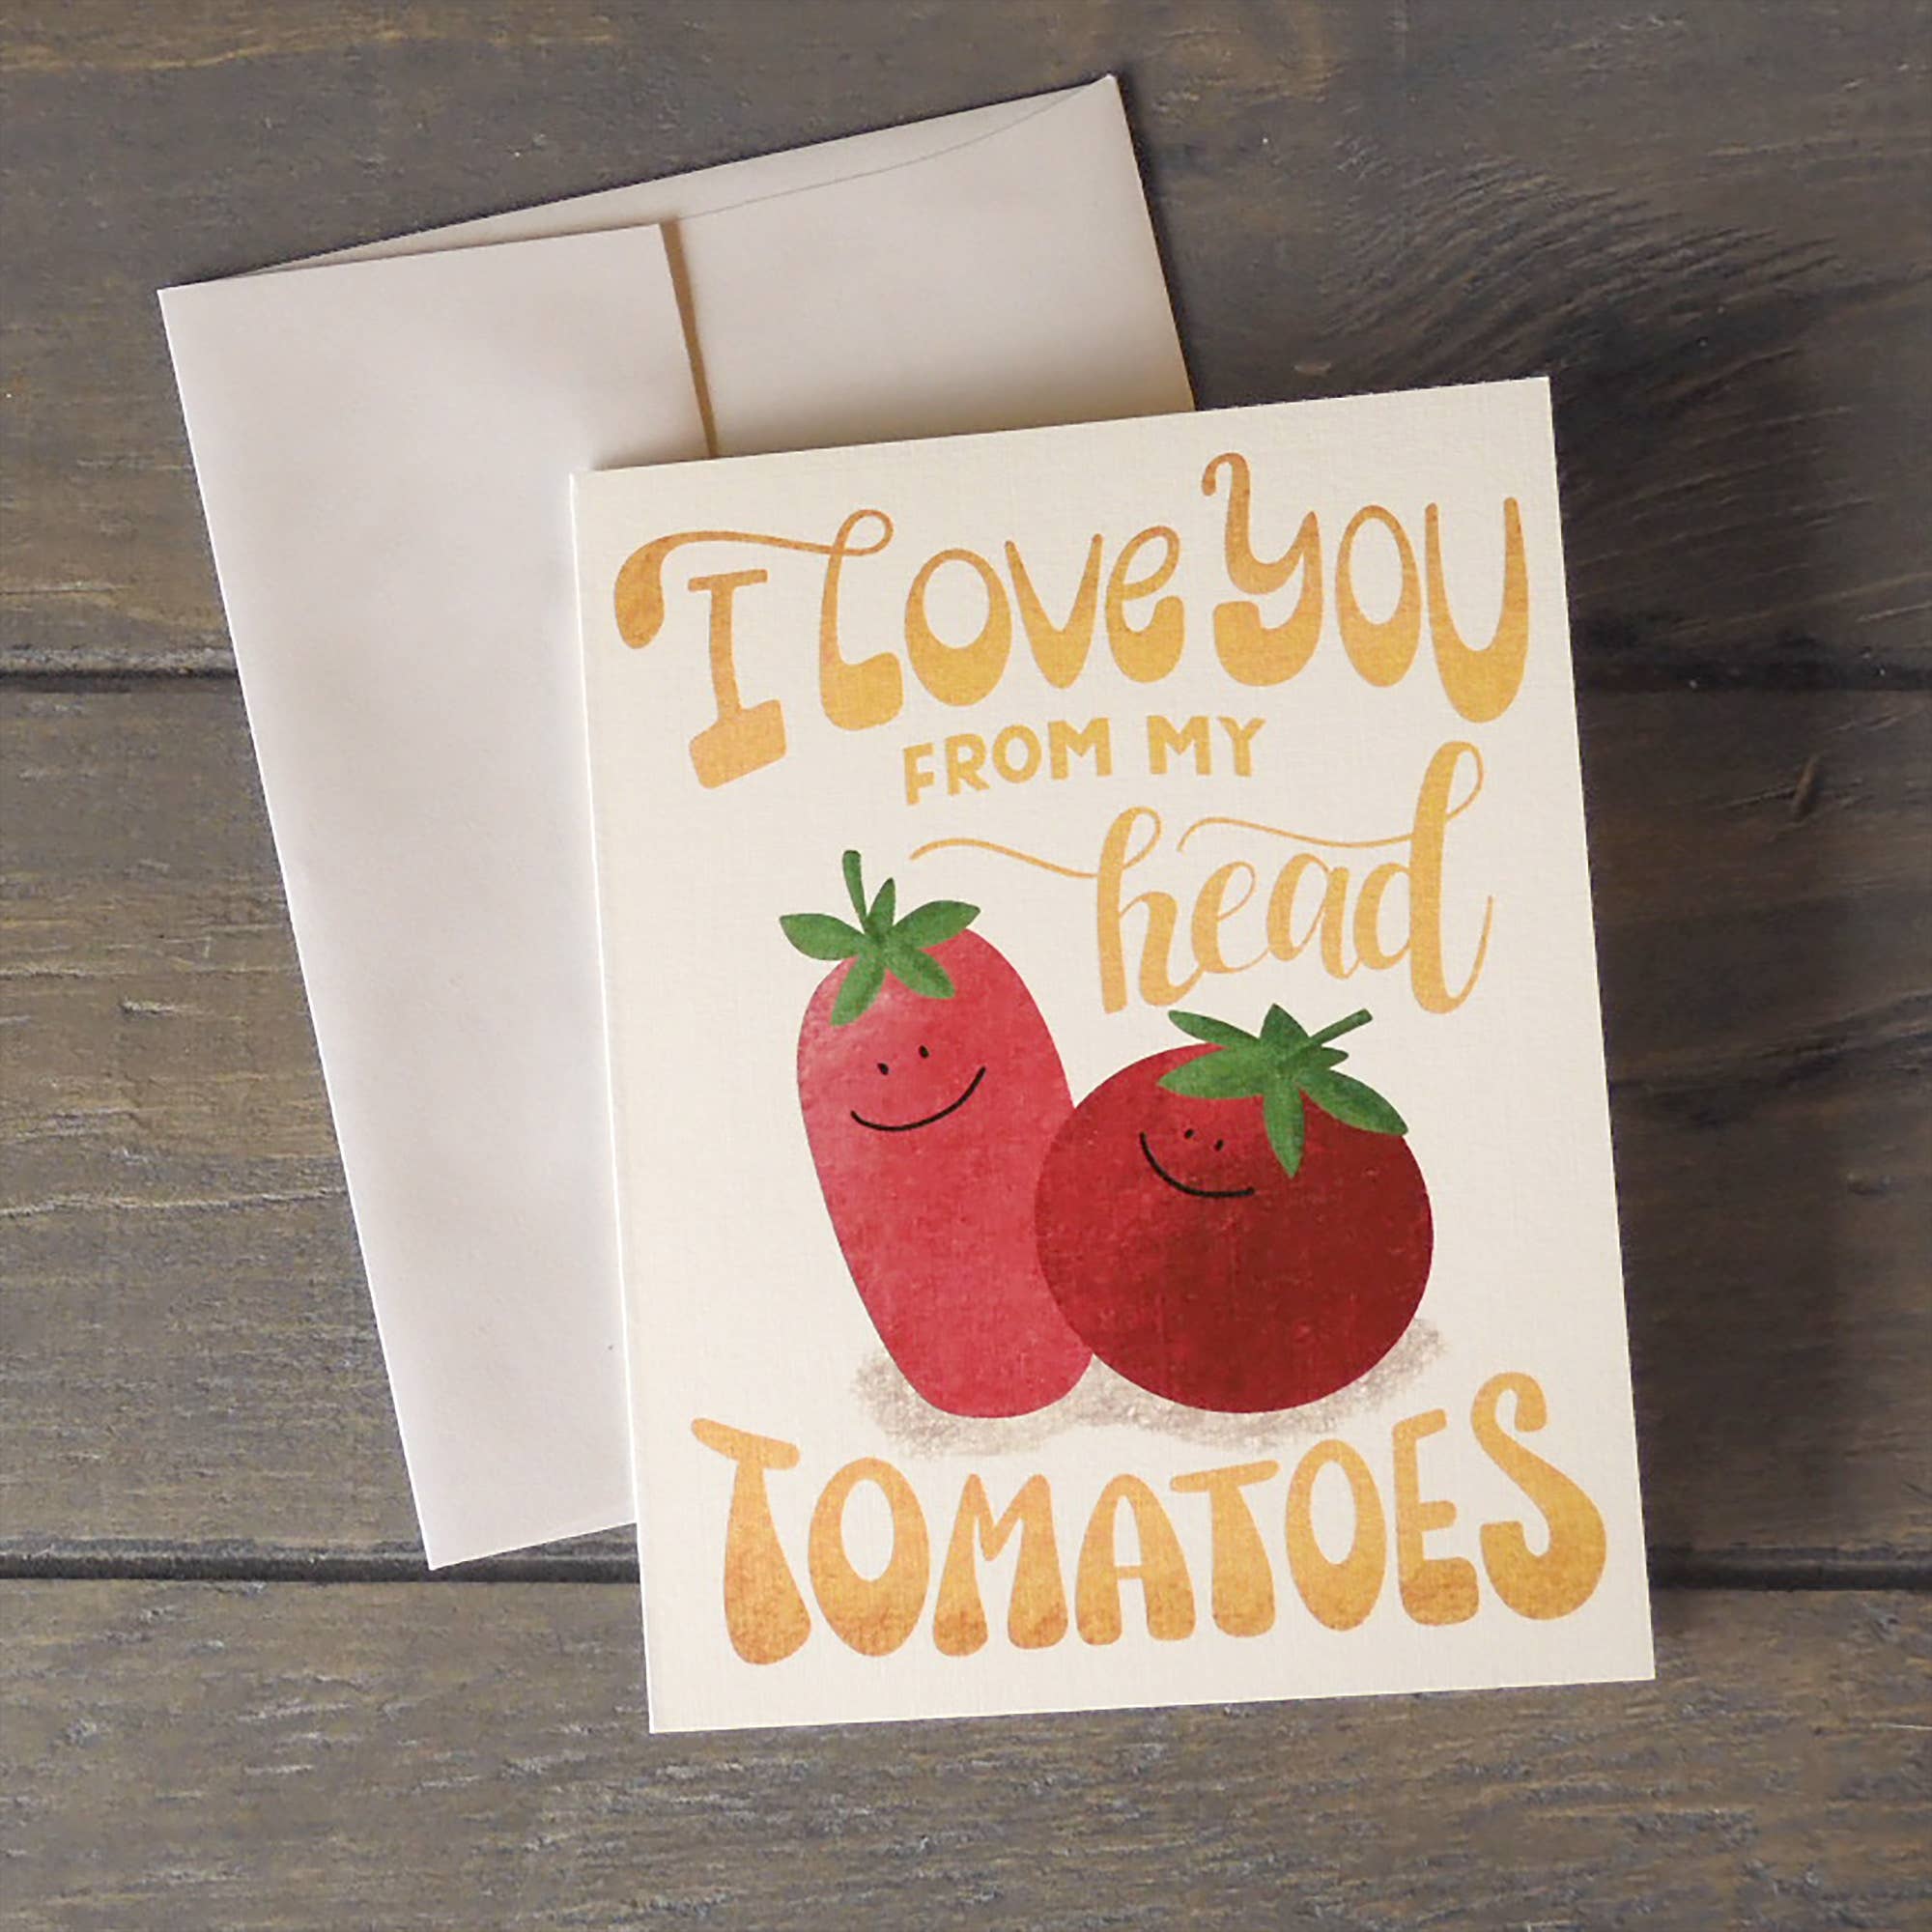 I Love You
FROM MY
head
TOMATOES